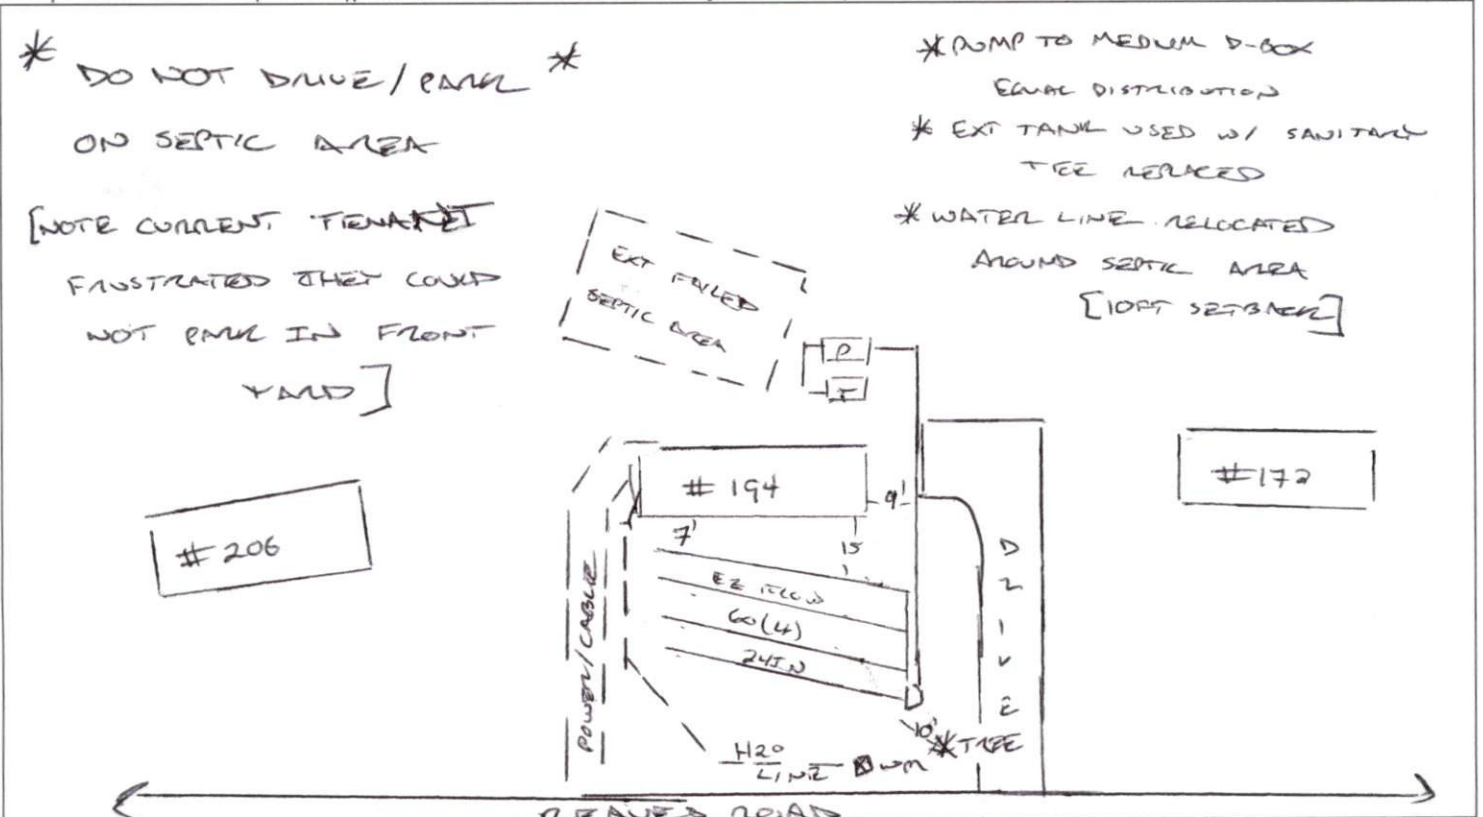 * DO NOT DRIVE/PARK *
ON SEPTIC AREA
[NOTE CURRENT TENANT
FRUSTRATED THEY COULD
NOT PARK IN FRONT
YARD]
*PUMP TO MEDIUM D-BOX
EQUAL DISTRIBUTION
* EXT TANK USED W/ SANITARY
TEE REPLACED
*WATER LINE RELOCATED
AROUND SEPTIC AREA
[10FT SETBACK]
EXT FAILED
SEPTIC AREA
P
T
#194
9'
#172
#206
7'
15'
EZ FLOW
60(4)
24IN
POWER/CABLE
DRIVE
10'
*TREE
H20
LINE
WM
ROAD